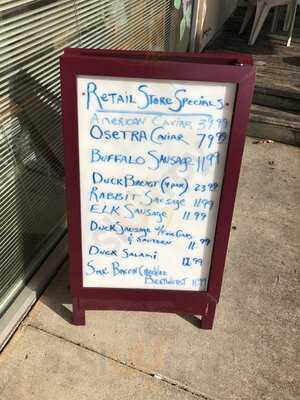 Retail Store Specials
American Caviar 39.99
Osetra Caviar 79.99
Buffalo Sausage 11.99
Duck Breast 23.99
Rabbit Sausage 11.99
Elk Sausage 11.99
Duck Sausage
& Sautern 11.99
Duck Salami 12.99
Bacon Cheddar
Bratwurst